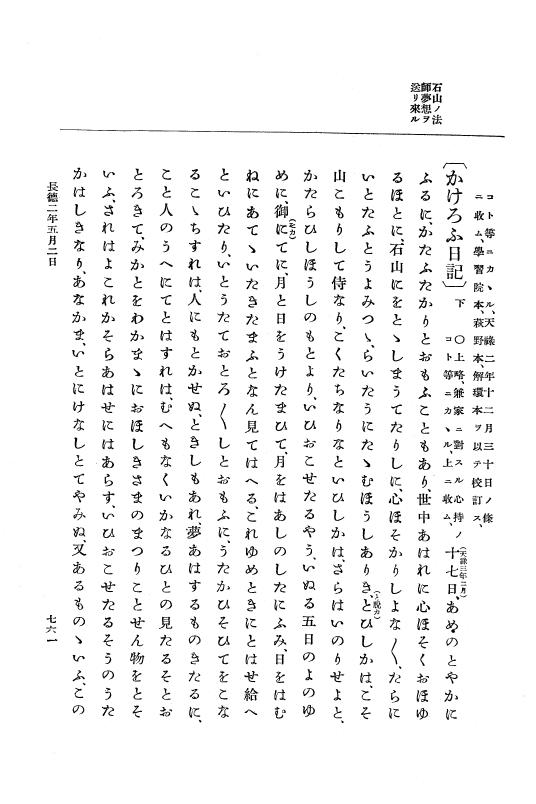 石山ノ法
師夢想ヲ
送リ來ル
コト等ニカヽル、天祿二年十二月三十日ノ條
ニ收ム、學習院本、萩野本、解環本ヲ以テ校訂ス、
〔かけろふ日記〕 下 ○上略、兼家ニ對スル心持ノ
コト等ニカヽル、上ニ收ム、
十七日、(天祿三年二月)あめのとやかに
ふるに、かたふたかりとおもふこともあり、世中あはれに心ほそくおほゆ
るほとに、石山にをとゝしまうてたりしに、心ほそかりしよな〳〵、たらに
いとたふとうよみつゝ、らいたうにたゝむほうしありきとひしかは、(と脱カ)こそ
山こもりして侍なり、こくたちなりなといひしかは、さらはいのりせよと、
かたらひしほうしのもとより、いひおこせたるやう、いぬる五日のよのゆ
めに、御にてに、(そカ)月と日をうけたまひて、月をはあしのしたにふみ、日をはむ
ねにあてゝいたきたまふとなん見てはへる、これゆめときにとはせ給へ
といひたり、いとうたておとろ〳〵しとおもふに、うたかひそひてをこな
るこゝちすれは、人にもとかせぬ、ときしもあれ、夢あはするものきたるに、
こと人のうへにてとはすれは、むへもなくいかなるひとの見たるそとお
とろきて、みかとをわかまゝにおほしきさまのまつりことせん物をとそ
いふ、されはよこれかそらあはせにはあらす、いひおこせたるそうのうた
かはしきなり、あなかま、いとにけなしとてやみぬ、又あるものゝいふ、この
長德二年五月二日
七六一